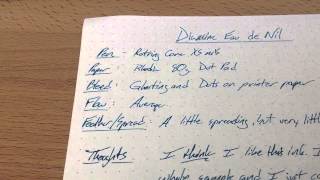 Diamine Eau de Nil
Pen - Rotring Core XS nib
Paper - Rhodia 80g Dot Pad
Bleed: Ghosting and Dots on printer paper
Flow: Average
Feather/Spread: A little spreading, but very little
Thoughts I think I like this ink. I
whole sample and I just co